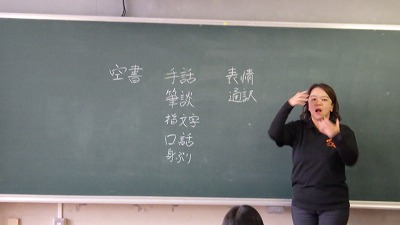 空書 手話 表情
筆談 通訳
指文字
口話
身ぶり